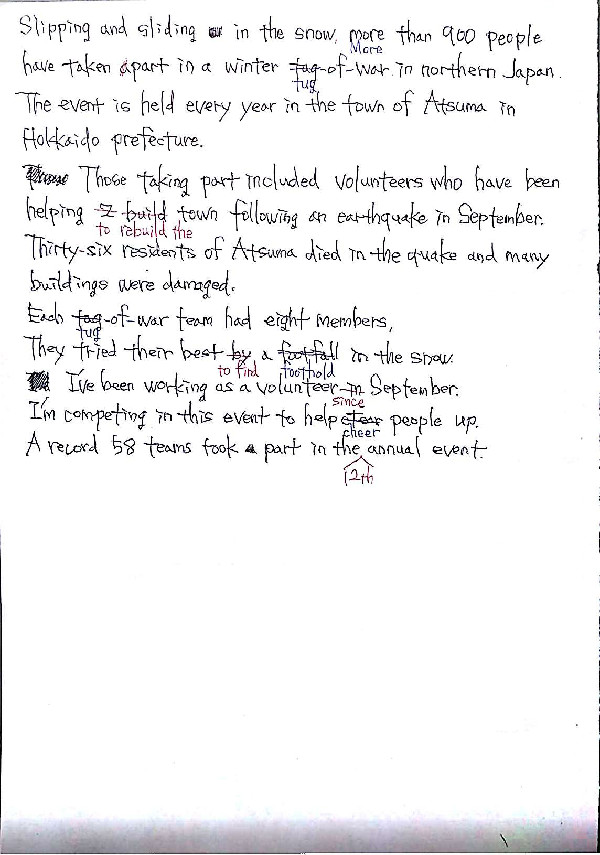 Slipping and sliding in the snow. more than 900 people
More
have taken apart in a winter tag-of-war in northern Japan.
tug
The event is held every year in the town of Atsuma in
Hokkaido prefecture.
Those taking part included volunteers who have been
helping build town following an earthquake in September.
to rebuild the
Thirty-six residents of Atsuma died in the quake and many
buildings were damaged.
Each tag-of-war team had eight members,
tug
They tried their best by a footfall in the snow.
to find foothold
I've been working as a volunteer in September.
since
I'm competing in this event to help people up.
cheer
A record 58 teams took a part in the annual event.
12th